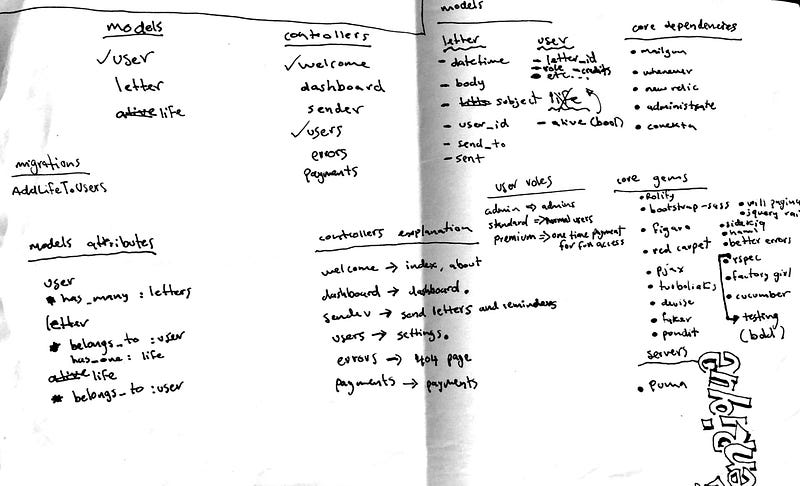 models
✓ user
letter
alive life
controllers
✓ welcome
dashboard
sender
✓ users
errors
payments
migrations
AddLifeToUsers
models attributes
user
* has_many : letters
letter
* belongs_to : user
has_one : life
alive life
* belongs_to : user
controllers explanation
welcome → index, about
dashboard → dashboard.
sender → send letters and reminders
users → settings.
errors → 404 page
payments → payments
models
letter
- datetime
- body
- subject
- user_id
- send_to
- sent
user
- letter_id
- role - credits
• etc...
life
- alive (bool)
core dependencies
• mailgun
• whenever
• new relic
• administrate
• conekta
user roles
admin → admins
standard → normal users
premium → one time payment
for full access
core gems
• Rolify
• bootstrap-sass
• figaro
• red carpet
• pjax
• turbolinks
• devise
• faker
• pundit
• will pagina
• jquery rai
• sidekiq
• better errors
• rspec
• factory girl
• cucumber
→ testing
(bdd)
servers
• puma